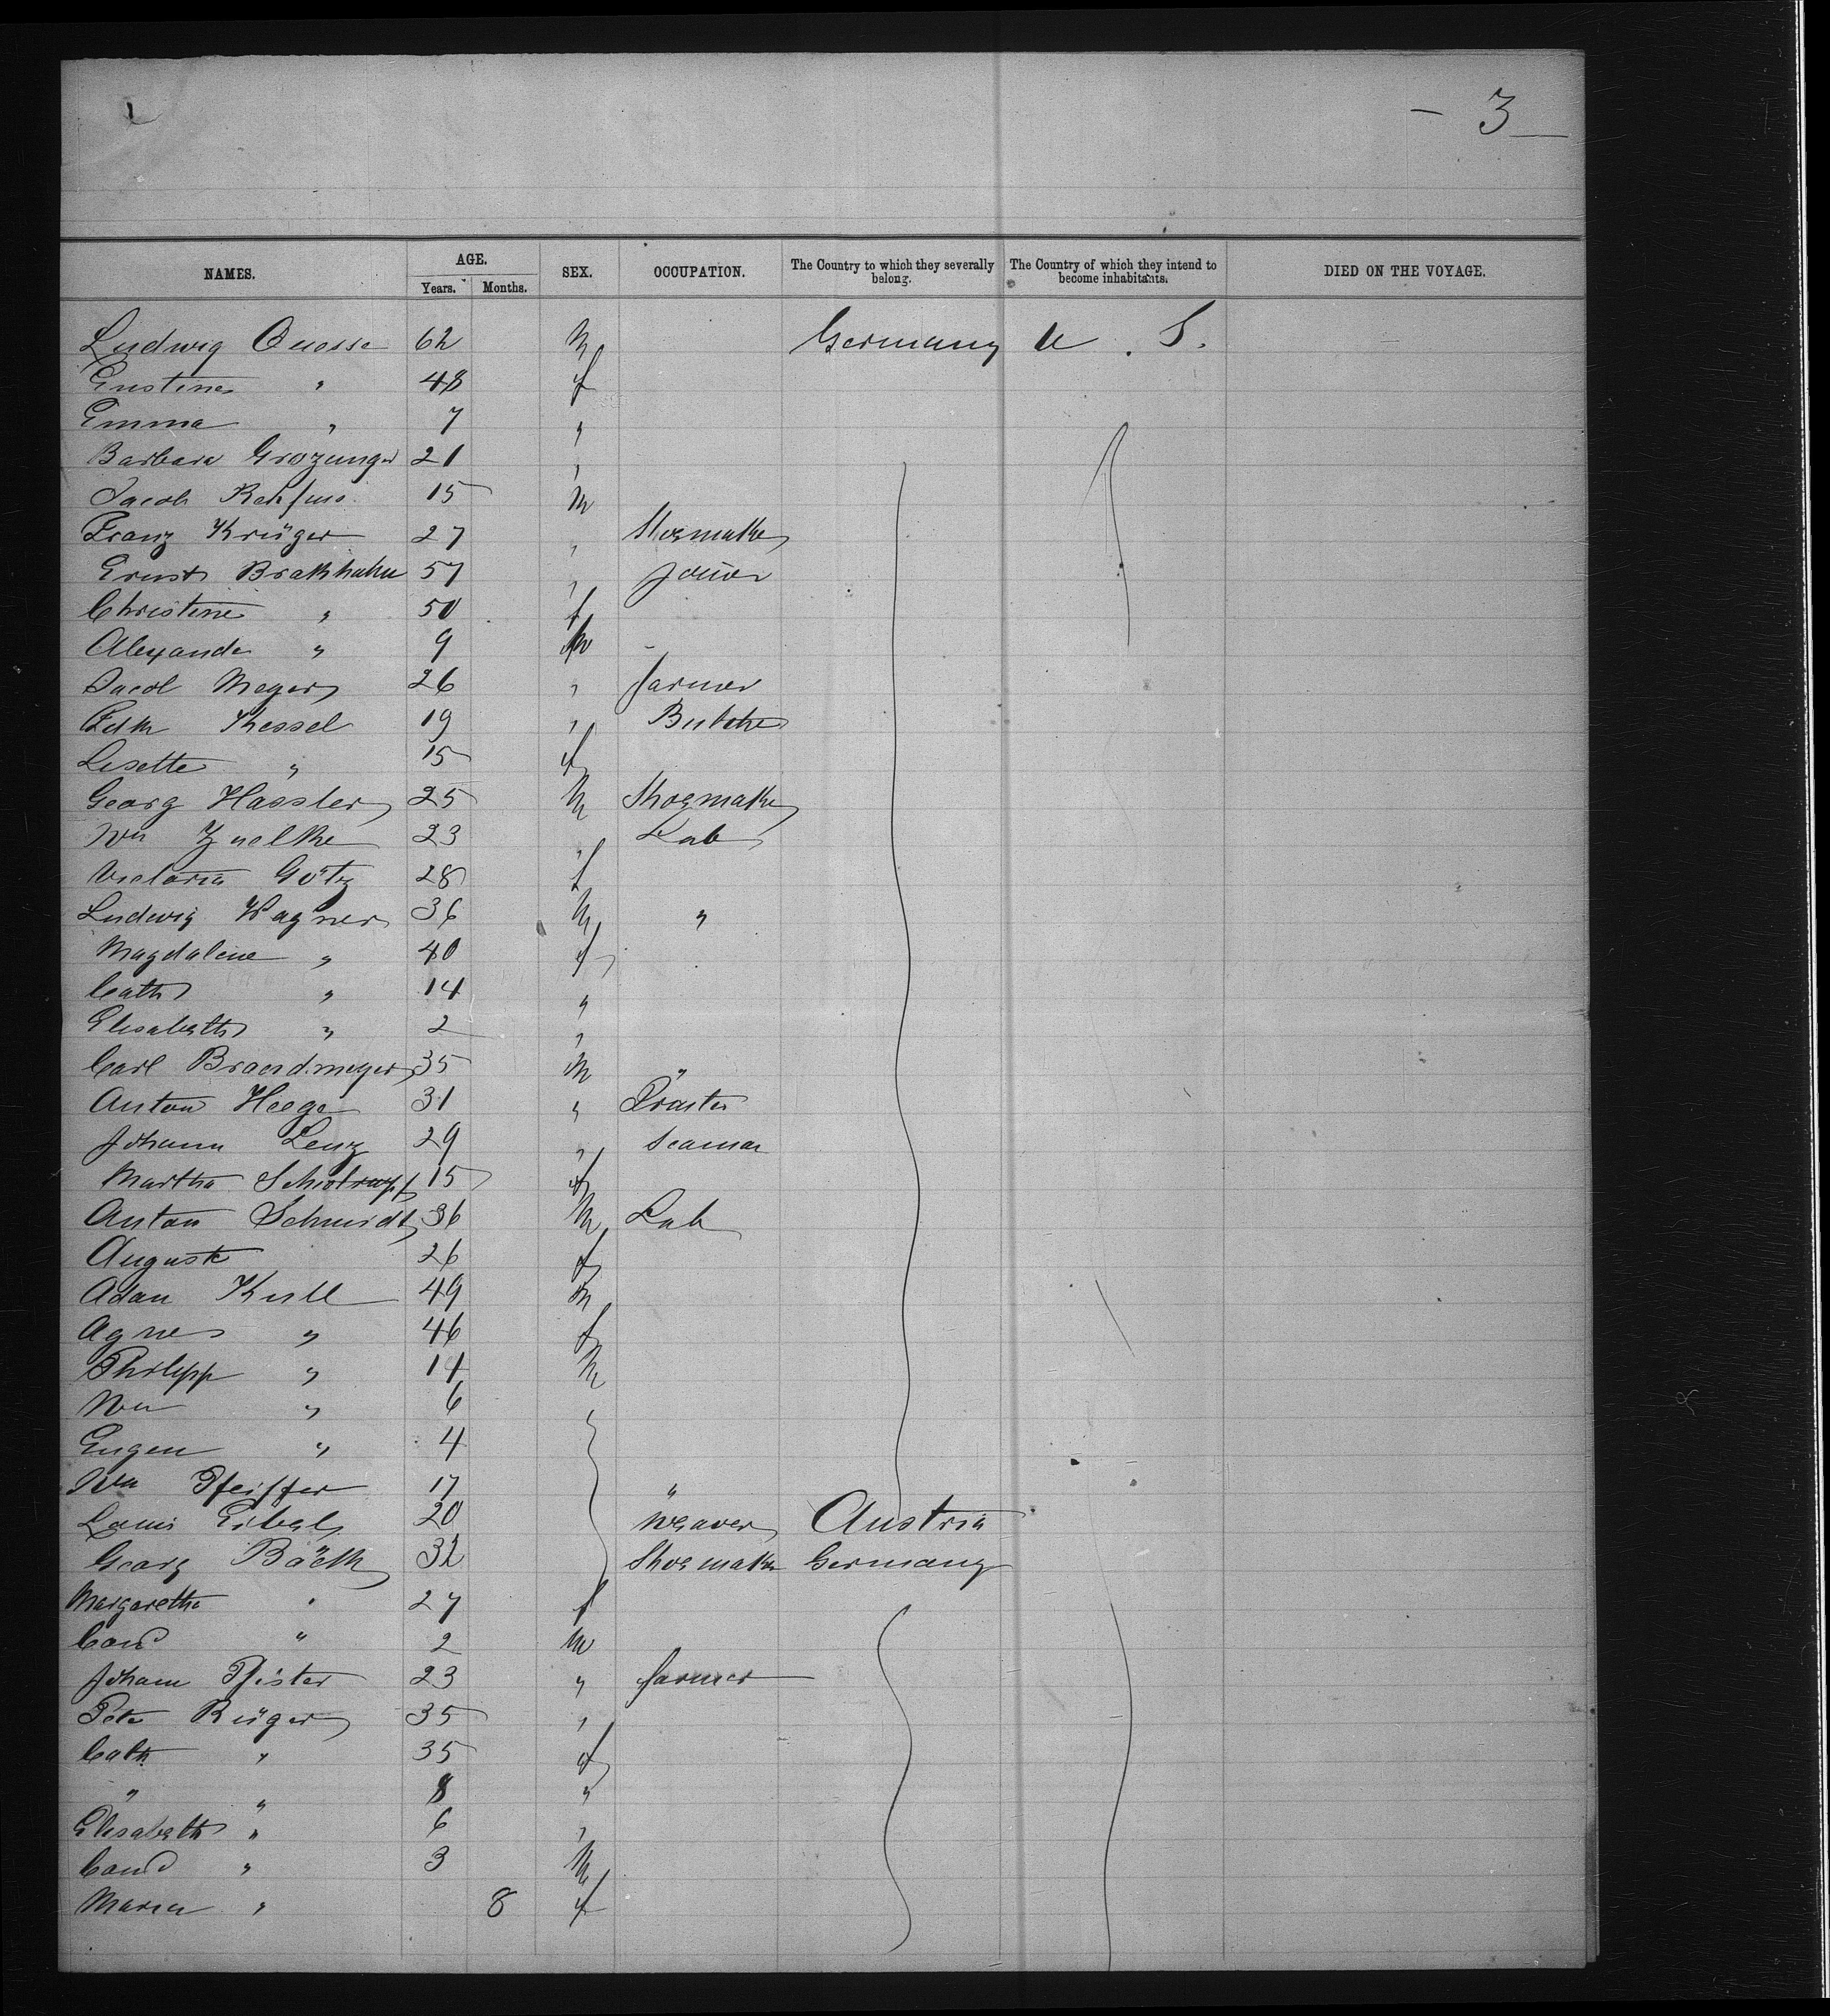 - 3 -
NAMES. AGE. Years. Months. SEX. OCCUPATION. The Country to which they severally belong. The Country of which they intend to become inhabitants. DIED ON THE VOYAGE.
Ludwig 62 M Germany U. S.
" 48 f
Emma " 7 "
Barbara Grozunger 21 "
Jacob Rehfuss 15 M
Franz Krüger 27 " Shoemaker
Ernst Brakhahn 57 " Joiner
Christine " 50 f
Alexander " 9 M -
Jacob Meyer 26 " farmer
Kessel 19 " Butcher
Lisette " 15 f
Georg Hassler 25 M Shoemaker
Wm Zuelke 23 " Lab
Victoria Götz 28 f
Ludwig Wagner 36 M "
Magdalene " 40 f
Cath " 14 "
Elisabeth " 2 "
Carl Braendmeyer 35 M "
Anton Heege 31 "
Johann Lenz 29 " Seaman
Martha 15 f
Anton Schmidt 36 M Lab
Auguste 26 f
Adam Kull 49 M
Agnes " 46 f
Philipp " 14 M
Wm " 6
Eugen " 4
Wm Pfeiffer 17 "
Louis 20 Weaver Austria
Georg Bäck 32 Shoemaker Germany
Margaretha " 27 f
" 2 M
Johann Pfister 23 " farmer
Peter Rüger 35 "
Cath " 35 f
" " 8 "
Elisabeth " 6 "
" 3 M
Maria " 8 f